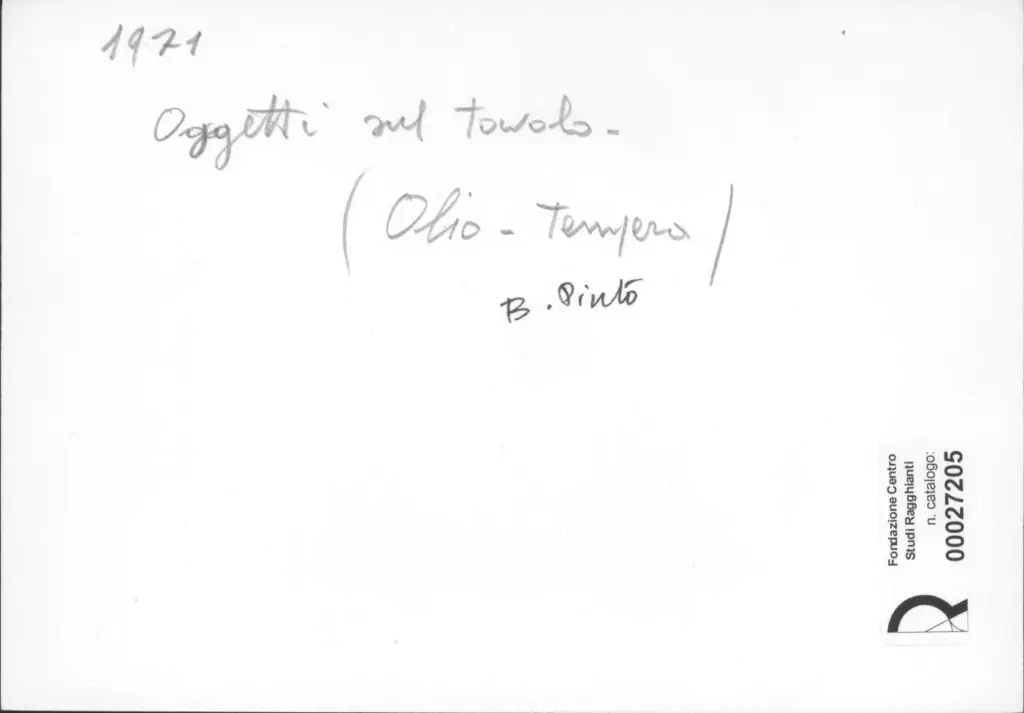 1971
Oggetti sul tavolo-
(Olio - Tempera)
B. Pintò
Fondazione Centro
Studi Ragghianti
n. catalogo:
00027205